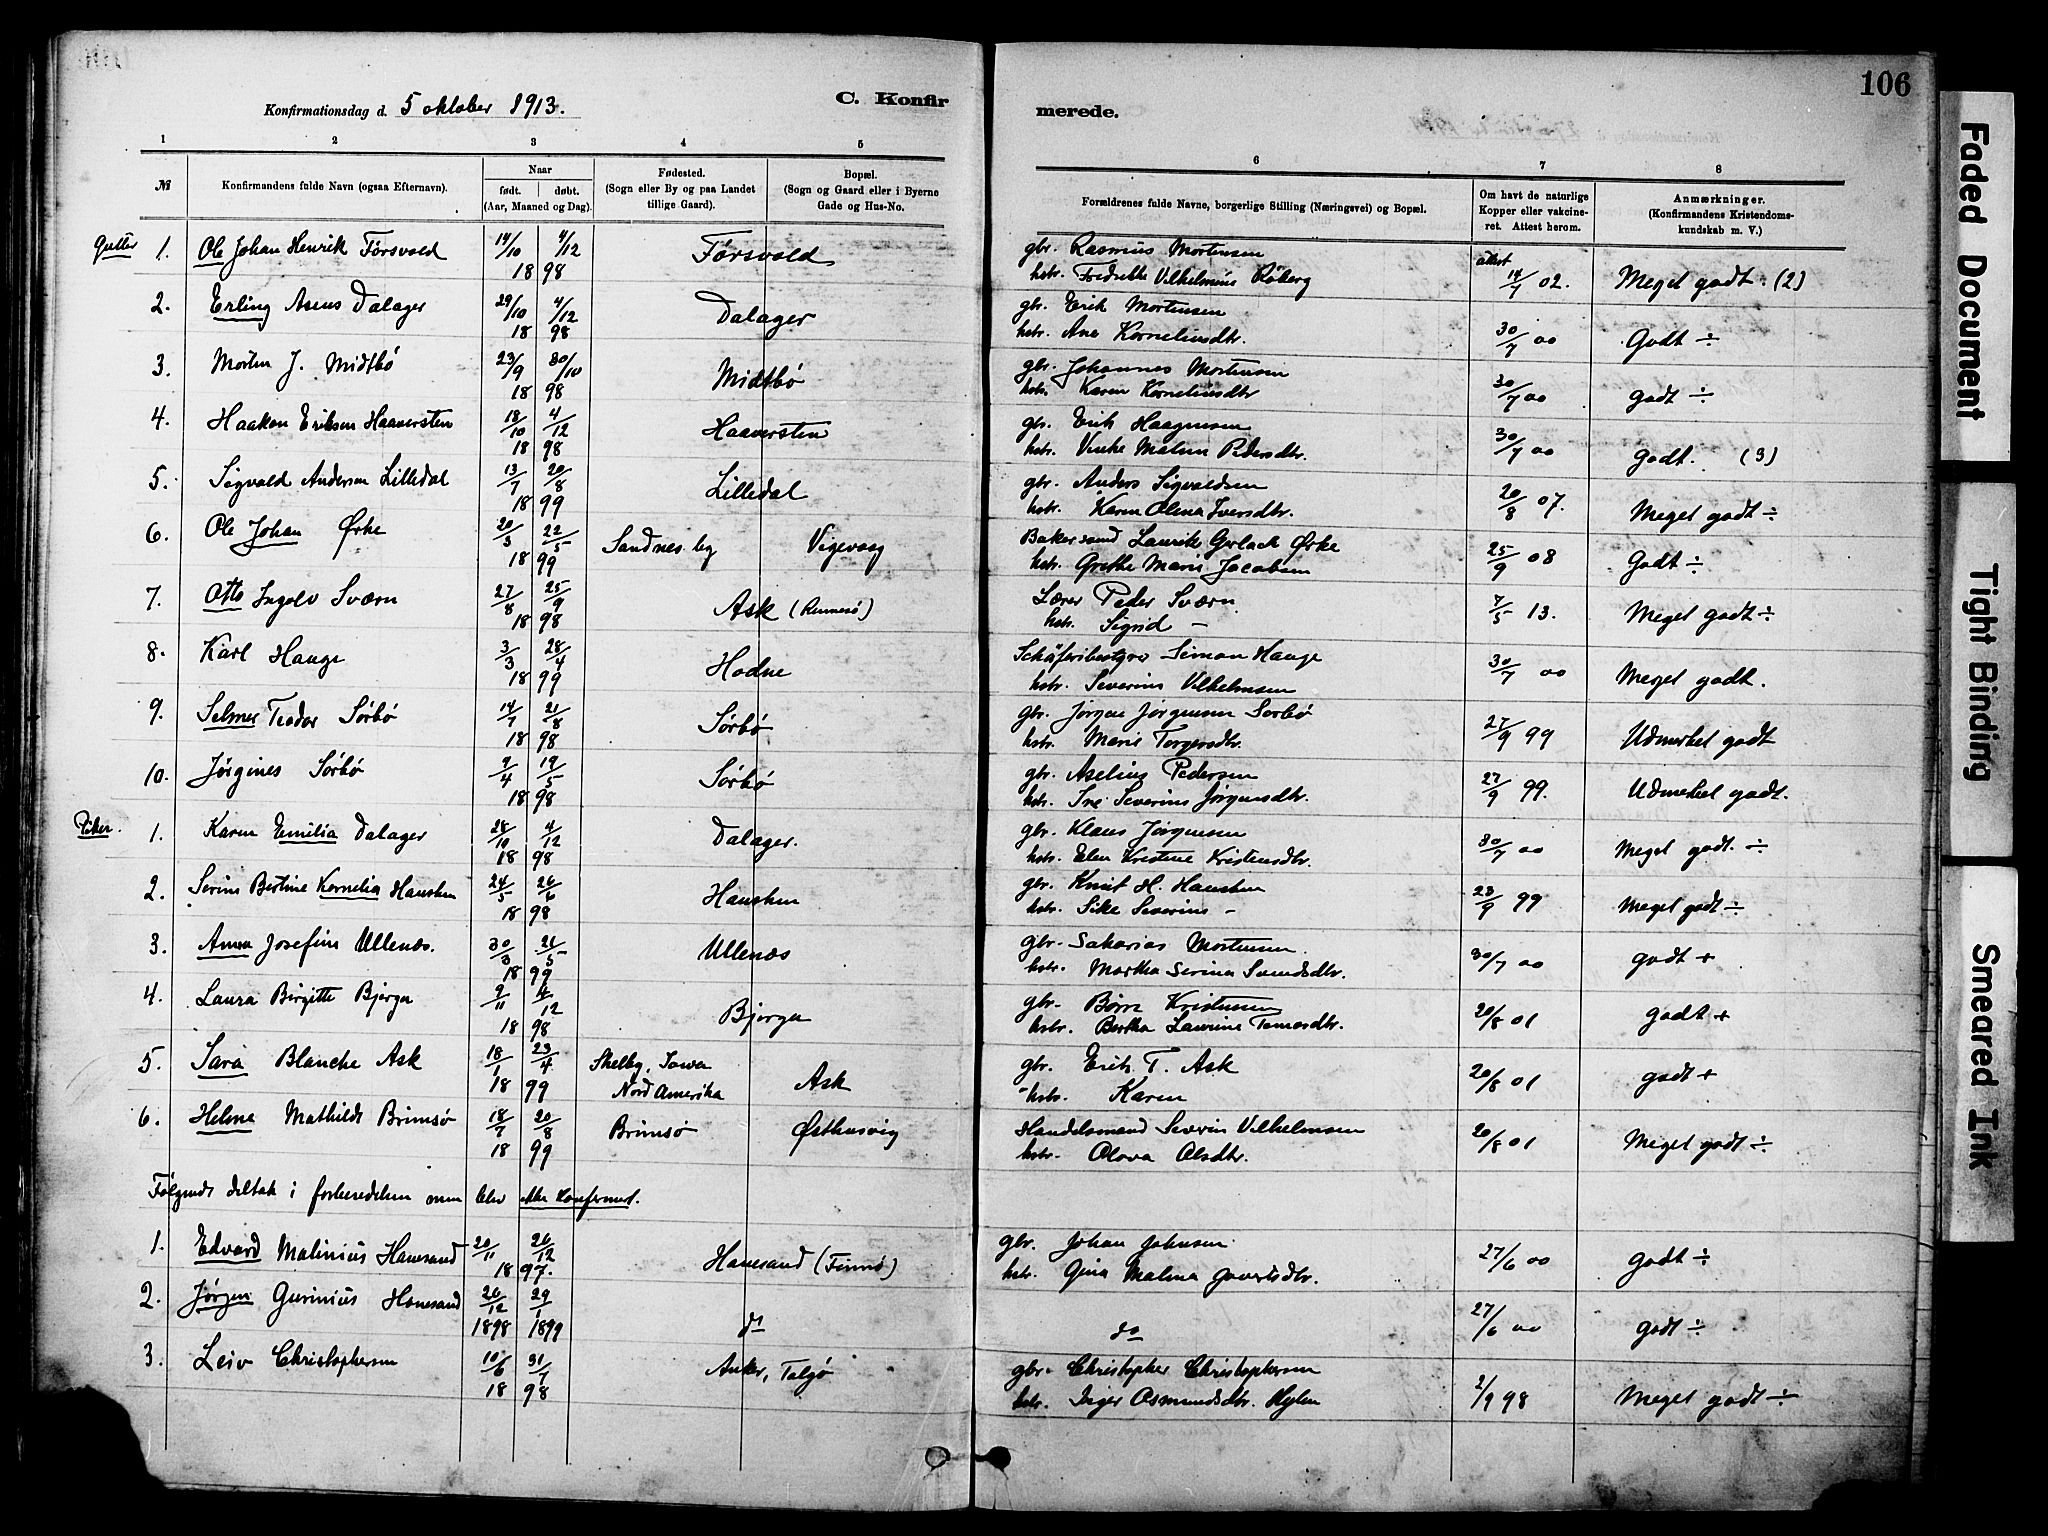 106
Konfirmationsdag d. 5 oktober 1913.
C. Konfir
merede.
1 2 3 4 5 6 7 8
№ Konfirmandens fulde Navn (ogsaa Efternavn). Naar født. døbt. (Aar, Maaned og Dag). Fødested. (Sogn eller By og paa Landet tillige Gaard). Bopæl. (Sogn og Gaard eller i Byerne Gade og Hus-No. Forældrenes fulde Navne, borgerlige Stilling (Næringsvei) og Bopæl. Om havt de naturlige Kopper eller vakcineret. Attest herom. Anmærkninger. (Konfirmandens Kristendomskundskab m. V.)
Gutter 1. Ole Johan Henrik Førsvold 14/10 4/12 Førsvold gbr. Rasmus Mortensen attest
1898 hstr. Vilhelmine 14/7 02. Meget godt. (2)
2. Erling Aseus Dalager 29/10 4/12 Dalager gbr. Erik Mortensen
1898 hstr. Ane Korneliusdtr. 30/7 00 Godt ÷
3. Morten J. Midtbø 23/9 30/10 Midtbø gbr. Johannes Mortensen
1898 hstr. Karen Korneliusdtr 30/7 00 godt ÷
4. Haakon Eriksen Haaversten 18/10 4/12 Haaversten gbr. Erik Haagensen
1898 hstr. Malene Pedersdtr. 30/7 00 godt. (3)
5. Sigvald Andersen Lilledal 13/7 20/8 Lilledal gbr. Anders Sigvaldsen
1899 hstr. Karen Olena Iversdtr. 20/8 07. Meget godt ÷
6. Ole Johan Ørke 20/3 22/5 Sandnes by Vigevaag Bakersvend Laurik Gerlach Ørke
1899 hstr. Grethe Marie Jacobsen 25/9 08 Godt ÷
7. Otto Ingolv Sværn 27/8 25/9 Ask (Rennesø) Lærer Peder Sværn
1898 hstr. Sigrid — 7/5 13. Meget godt ÷
8. Karl Hauge 3/3 28/4 Hodne Schäferibestyrer Simon Hauge
1899 hstr. Severine Vilhelmsen 30/7 00 Meget godt.
9. Selmer Teodor Sørbø 14/7 21/8 Sørbø gbr. Jørgen Jørgensen Sørbø
1898 hstr. Marie Torgersdtr. 27/9 99 Udmerket godt
10. Jørgines Sørbø 9/4 19/5 Sørbø gbr. Aselius Pedersen
1898 hstr. Severine Jørgensdtr. 27/9 99. Udmerket godt.
Piker. 1. Karen Emilia Dalager 28/10 4/12 Dalager. gbr. Klaus Jørgensen
1898 hstr. Elen Kristine Kristensdtr. 30/7 00 Meget godt. ÷
2. Serine Bertine Kornelia Hausken 24/5 26/6 Hausken gbr. Knut H. Hausken
1898 hstr. Sike Severine — 23/9 99 Meget godt ÷
3. Anna Josefine Ullenæs. 30/3 21/5 Ullenæs gbr. Sakarias Mortensen
1899 hstr. Martha Serina Svendsdtr. 30/7 00 godt +
4. Laura Birgitte Bjerga 9/11 4/12 Bjerga gbr. Børre Kristensen
1898 hstr. Bertha Laurine Tomasdtr. 20/8 01 godt +
5. Sara Blanche Ask 18/1 23/4 Shelby, Iowa gbr. Erik T. Ask
1899 Nord Amerika Ask hstr. Karen 20/8 01 godt +
6. Helene Mathilde Brimsø 18/7 20/8 Brimsø Østhusvig Handelsmand Severin Vilhelmsen
1899 hstr. Olava Olsdtr. 20/8 01 Meget godt ÷
Følgende deltok i forberedelsen men blev ikke konfirmert.
1. Edvard Malinius Hanesand 20/11 26/12 Hanesand (Finnø) gbr. Johan Johnsen
1897. hstr. Gina Malena Govertsdtr. 27/6 00 godt ÷
2. Jørgen Gurinius Hanesand 26/12 29/1
1898 1899 do do 27/6 00 godt ÷
3. Leiv Christophersen 10/6 31/7 Anker, Talgø gbr. Christopher Christophersen
1898 hstr. Inger Osmundsdtr. 2/9 98 Meget godt ÷
Faded Document
Tight Binding
Smeared Ink